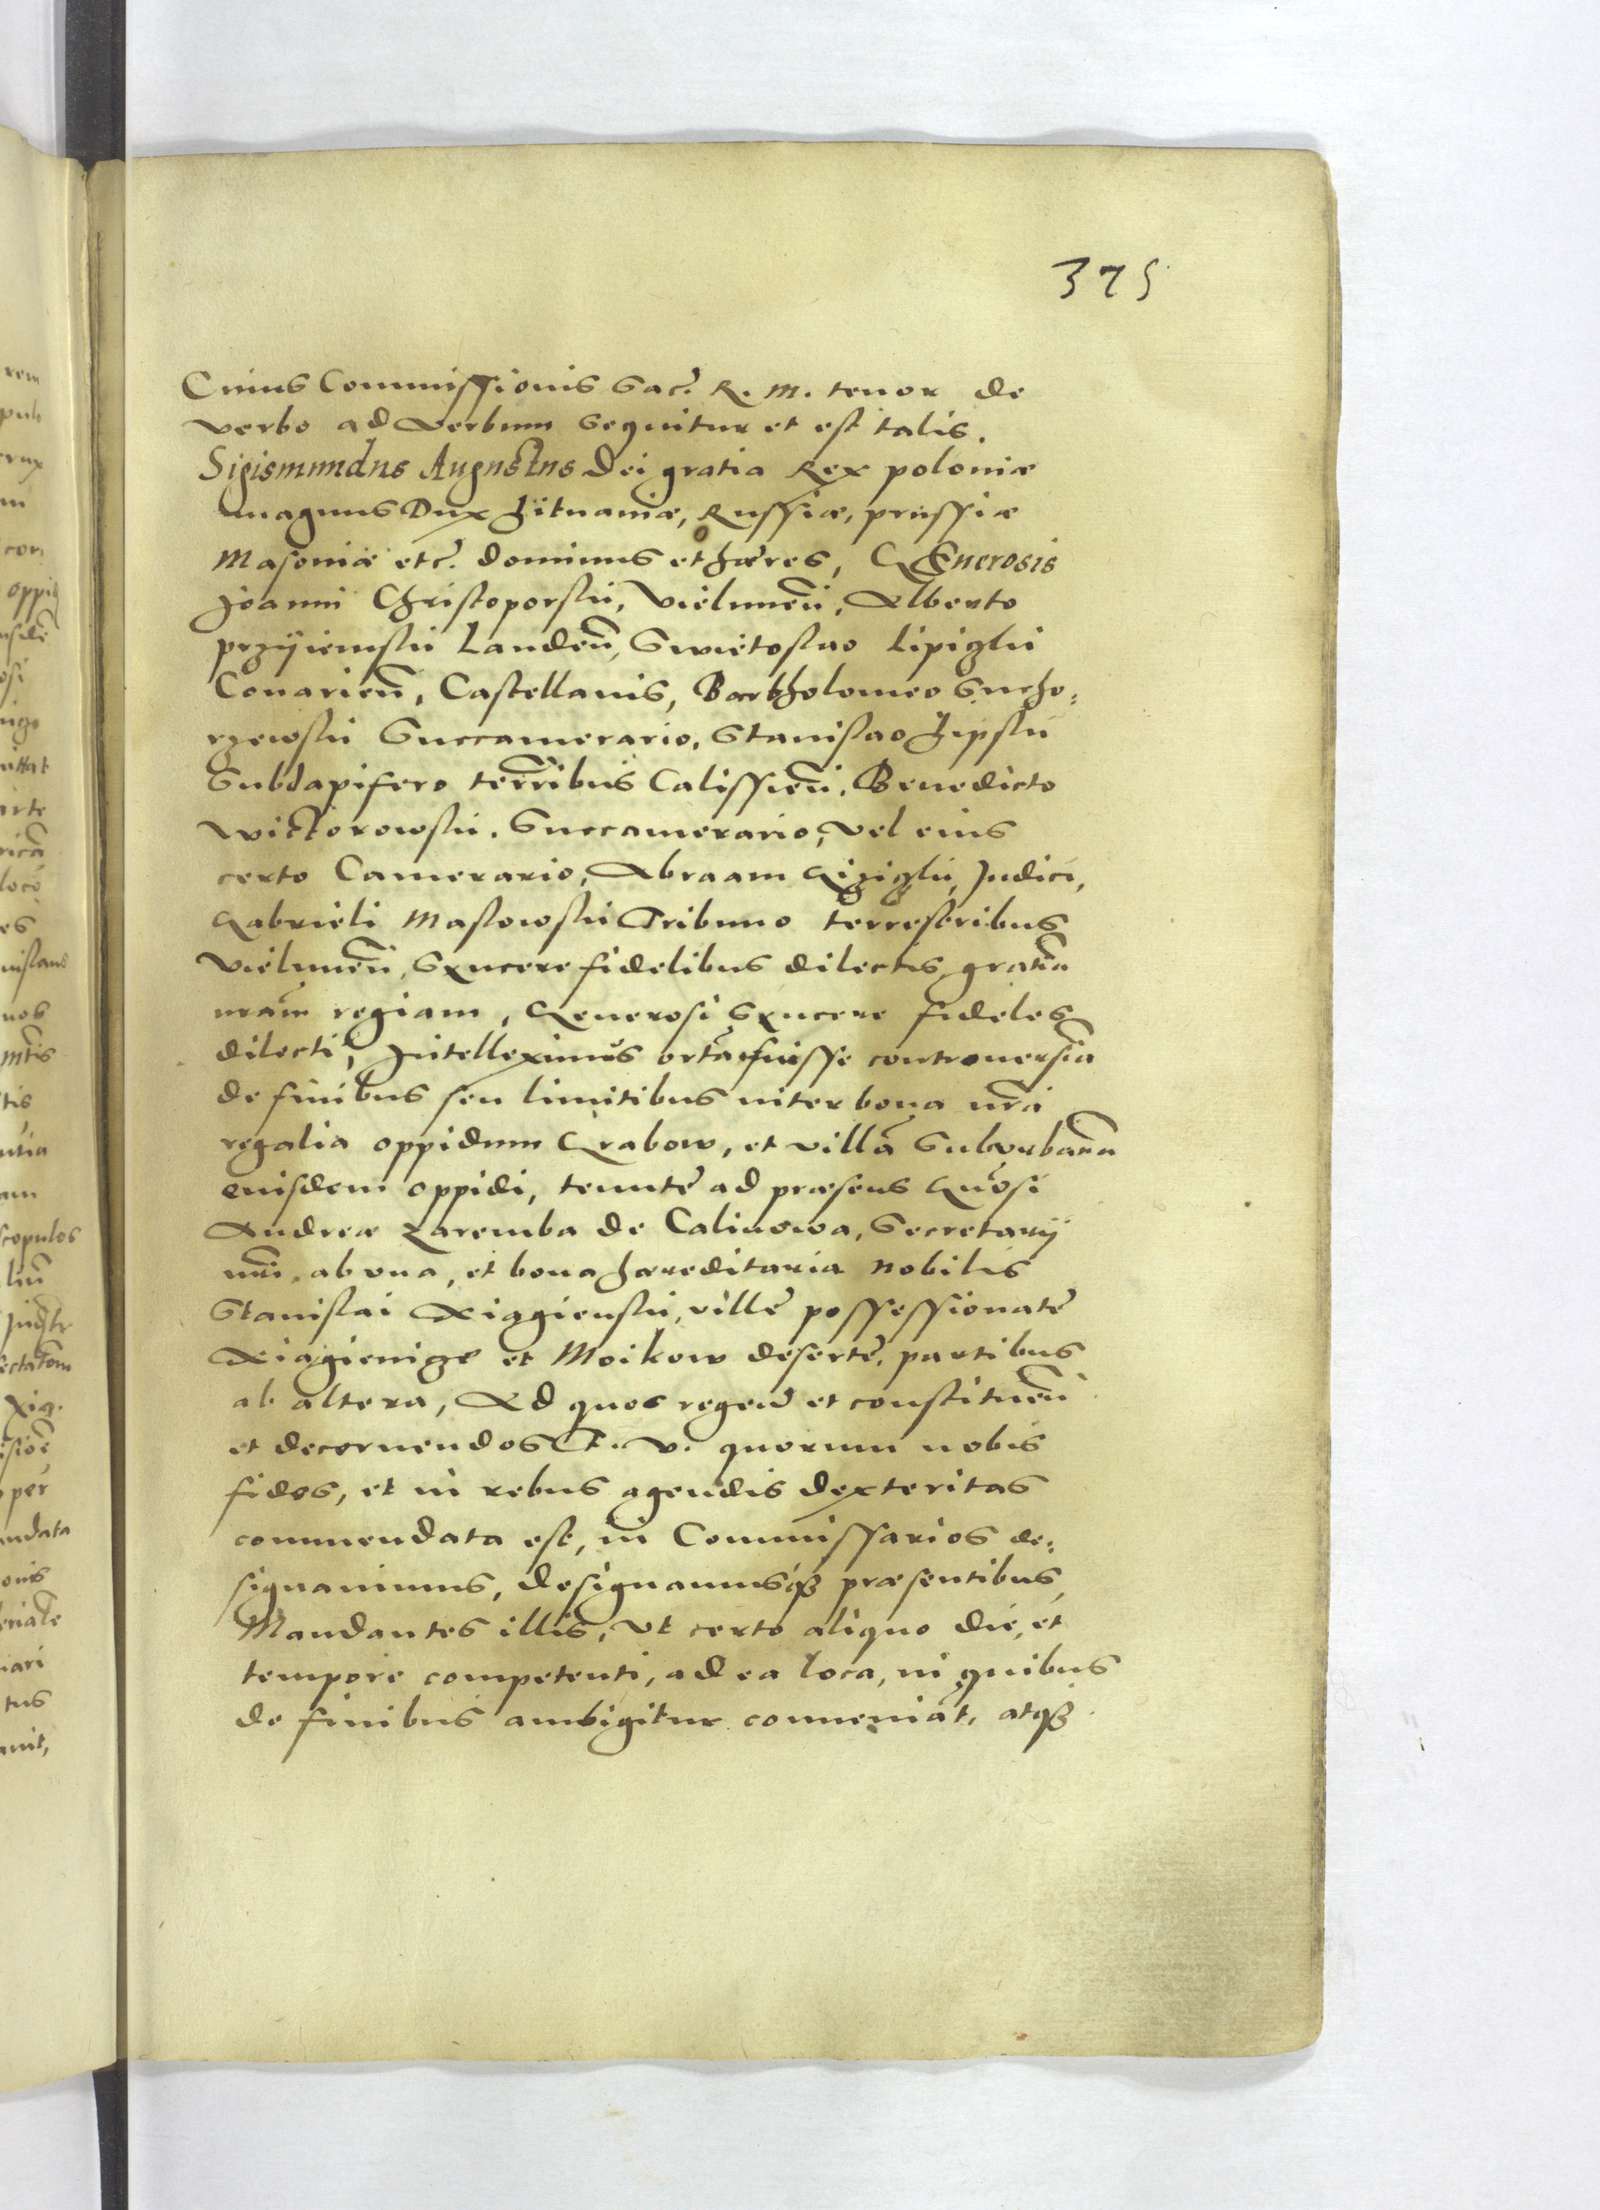 375
Cuius Commissionis Sac. R. M. tenor de
verbo ad verbum sequitur et est talis.
Sigismundus Augustus Dei gratia Rex poloniæ
magnus Dux Lituaniæ, Russiæ, prussiæ
Masoviæ etc. dominus et hæres, GEnerosis
Joanni Christoporskii, Vielunen, Alberto
przyiemskii Landen, Swietoslao Lipiczkii
Conarien, Castellanis, Bartholomeo Sucho:
rzewskii Succamerario, Stanislao Lipskii
Subdapifero terribus Calissien, Benedicto
Wicktorowskii. Succamerario, vel eius
certo Camerario, Abraam Judici,
Gabrieli Maslowskii Tribuno terrestribus
Vielunen, Syncere fidelibus dilectis, gratia
nram regiam, Generosi Syncere fideles
dilecti, Intelleximus orta fuisse controversia
de finibus seu limitibus inter bona nra
regalia oppidum Grabow, et villa Suburbana
eiusdem oppidi, tenute ad præsens Gnosi
Andreæ Zaremba de Calinowa, Secretarij
nri, ab una, et bona hæreditaria Nobilis
Stanislai Xiaziienskii, ville possessionate
Xiagienige et Moikow deserte, partibus
ab altera, Ad quos regend et constituen
et decernendos F. V. quorum nobis
fides, et in rebus agendis dexteritas
commendata est, in Commissarios de:
signavimus, designamusq præsentibus,
Mandantes illis, Ut certo aliquo die, et
tempore competenti, ad ea loca, in quibus
de finibus ambigitur conveniat, atq